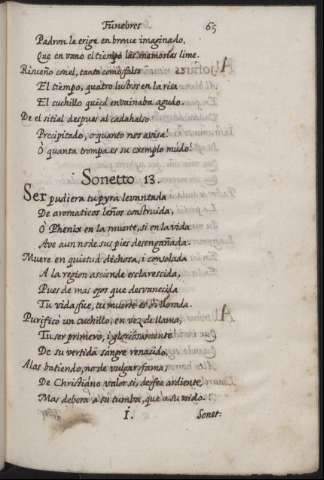 Funebres 65
Padron le erige en bronçe imaginado,
Que en vano el tiempo las memorias lime.
Risueño con el, tanto como falso
El tiempo, quatro lustros en la risa
El cuchillo quiçá envainaba agudo.
De el sitial despues al cadahalso
Precipitado, o quanto nos avisa!
Ò quanta trompa es su exemplo mudo!
Sonetto 13.
Ser pudiera tu pyra levantada
De aromaticos leños construida,
Ò Phenix en la muerte, si en la vida
Ave aun no de sus pies desengañada.
Muere en quietud dichosa, i consolada
A la region asciende esclarescida,
Pues de mas ojos que desvanecida
Tu vida fue, tu muerte es llorada.
Purificó un cuchillo, en vez de llama,
Tu ser primero, i gloriosamente
De su vertida sangre renasido,
Alas batiendo, no de vulgar fama,
De Christiano valor si, de fee ardiente
Mas debera a su tumba, que a su nido.
I. Sonet: